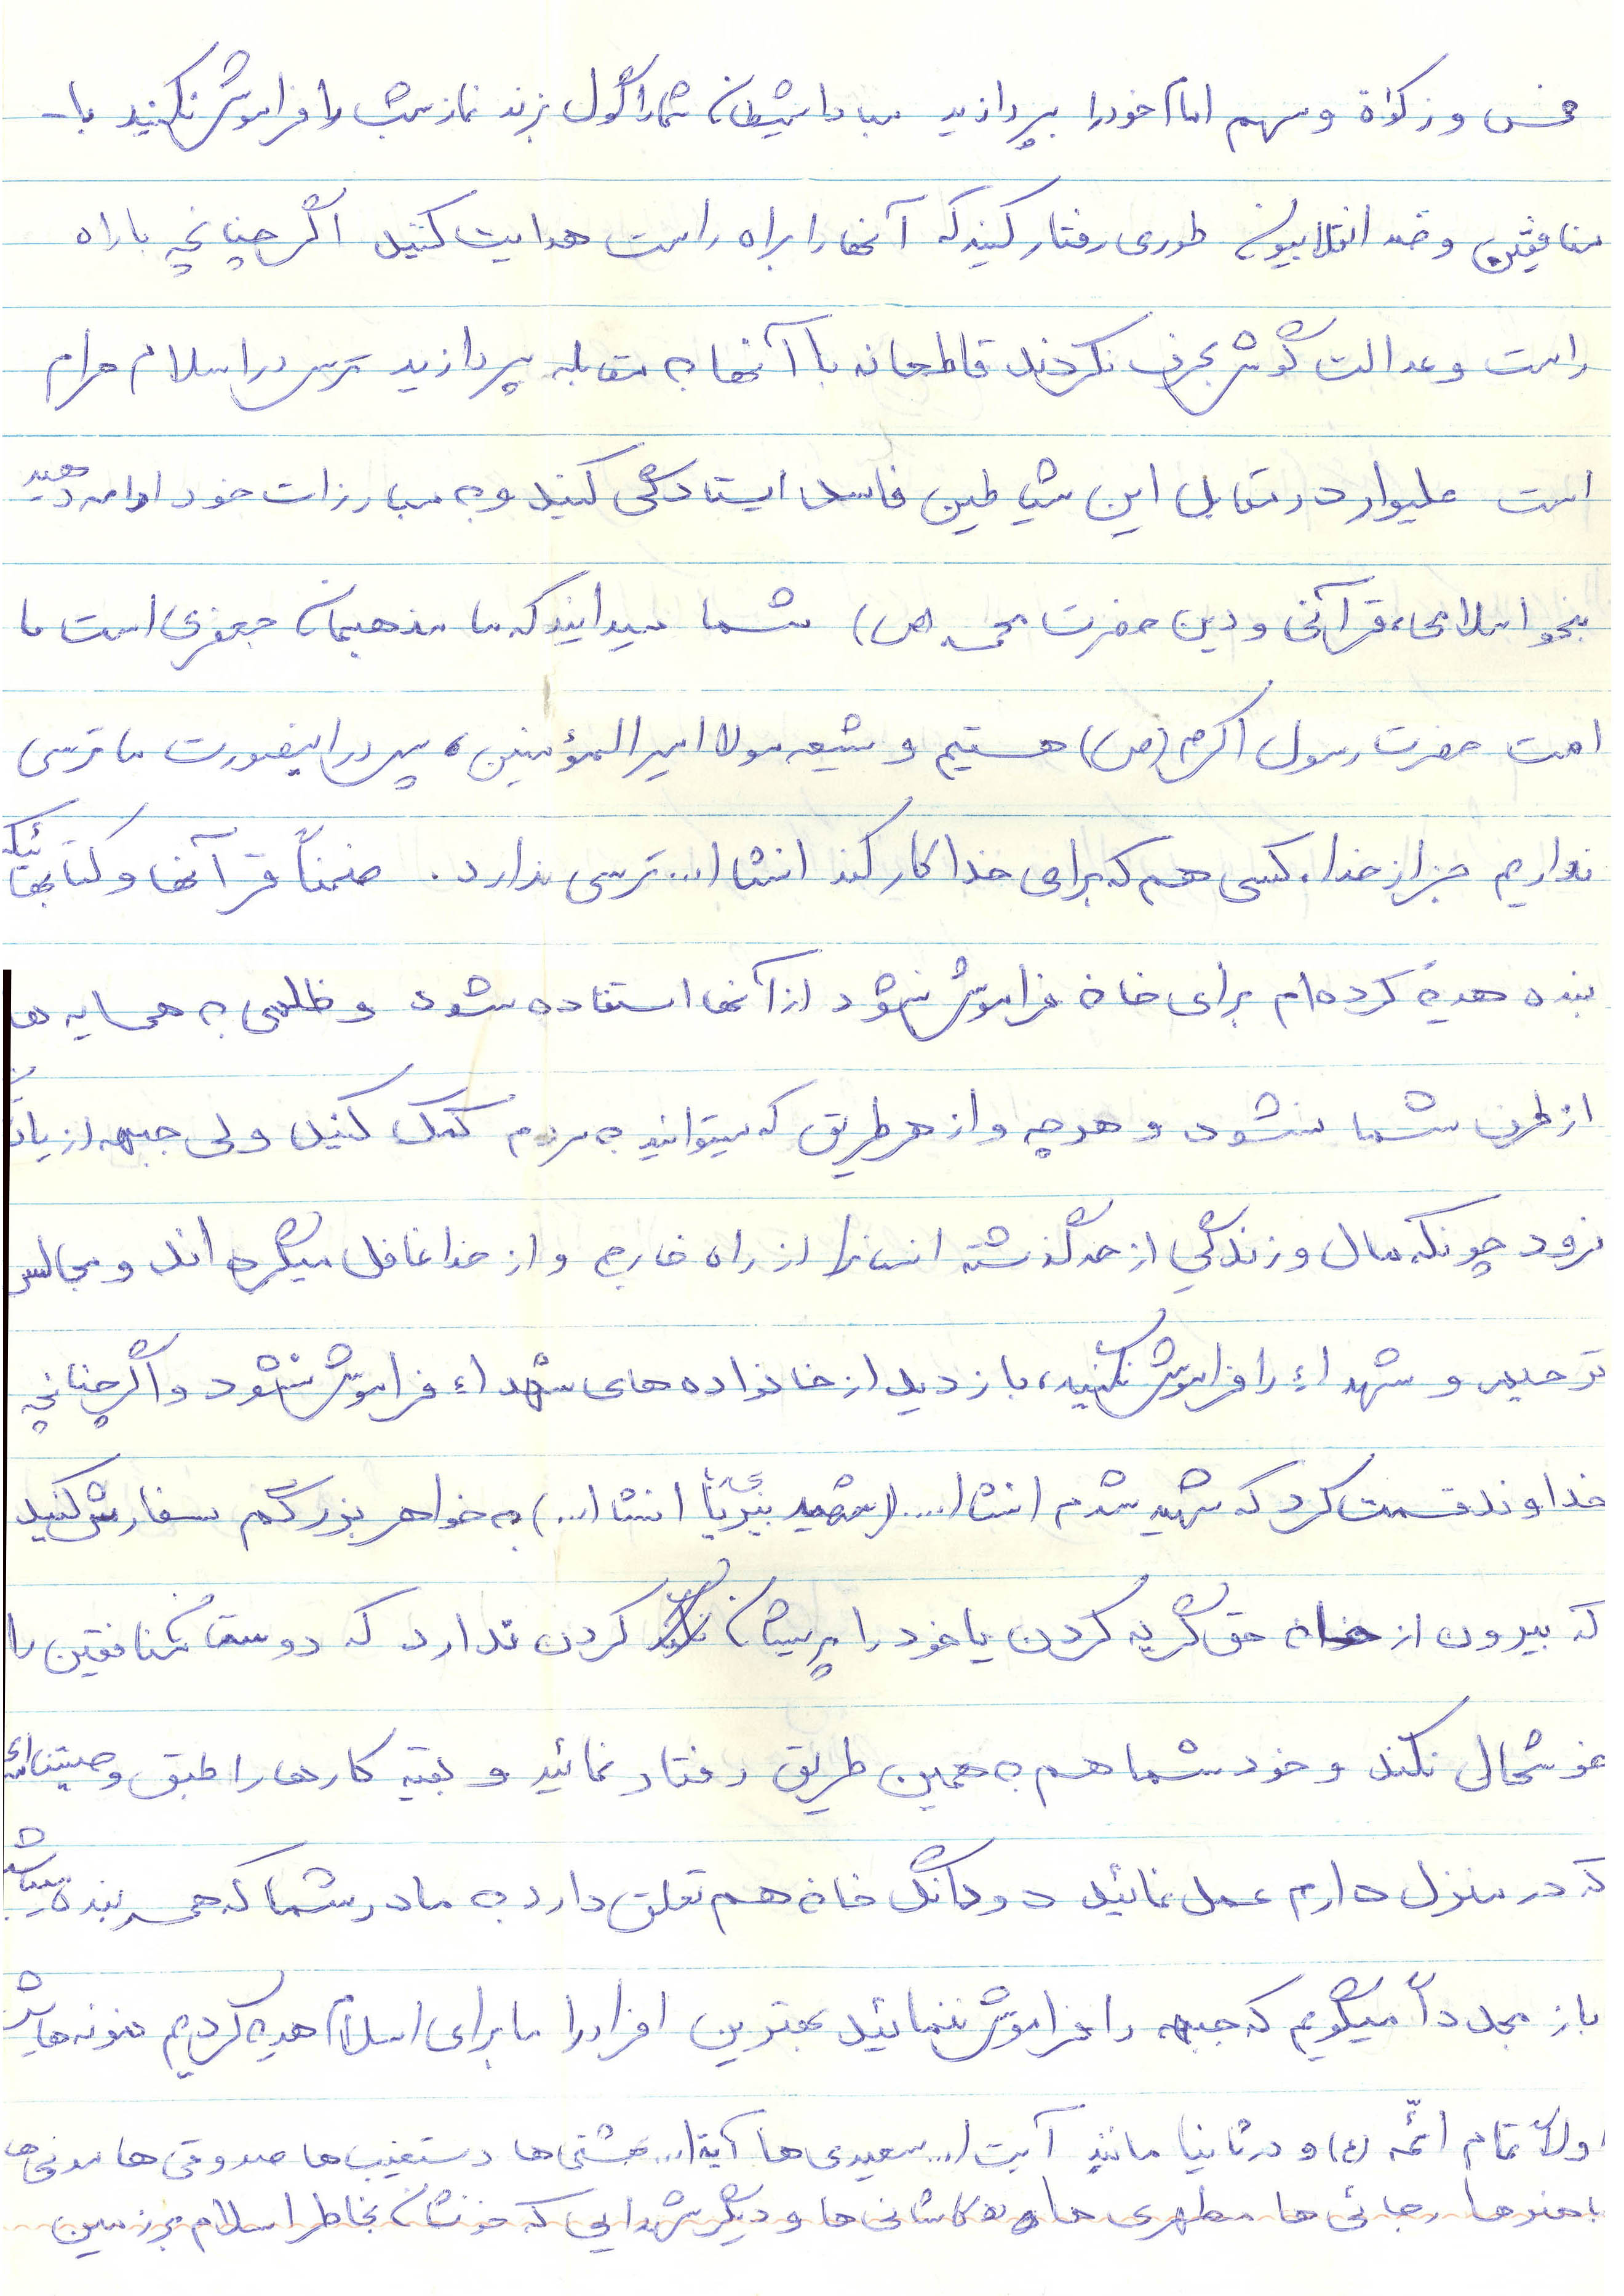 خمس و زکوٰة و سهم امام خود را بپردازید مبادا شیطان شما را گول بزند نماز شب را فراموش نکنید با-
منافقین و ضد انقلابیون طوری رفتار کنید که آنها را براه راست هدایت کنید اگر چنانچه با راه
راست و عدالت گوش بحرف نکردند قاطعانه با آنها به مقابله بپردازید ترس در اسلام حرام
است علیوار در مقابل این شیاطین فاسد ایستادگی کنید و به مبارزات خود ادامه دهید
بنحو اسلامی، قرآنی و دین حضرت محمد (ص) شما میدانید که ما مذهبمان جعفری است ما
امت حضرت رسول اکرم (ص) هستیم و شیعه مولا امیر المؤمنین، پس در اینصورت ما ترسی
نداریم جز از خدا. کسی هم که برای خدا کار کند انشا ا... ترسی ندارد. ضمناً قرآنها و کتابهائیکه
بنده هدیه کرده‌ام برای خانه فراموش نشود از آنها استفاده شود و ظلمی به همسایه ها
از طرف شما نشود و هر چه و از هر طریق که میتوانید به مردم کمک کنید ولی جبهه از یادتان
نرود چونکه مال و زندگی از حد گذشته انسانرا از راه خارج و از خدا غافل میگرداند و مجالس
ترحیم و شهداء را فراموش نکنید، بازدید از خانواده های شهداء فراموش نشود و اگر چنانچه
خداوند قسمت کرد که شهید شدم انشا ا.... (شهید بی‌ریا انشا ا...) به خواهر بزرگم سفارش کنید
که بیرون از خانه حق گریه کردن یا خود را پریشان کردن ندارد که دوستان منافقین ما
خوشحالی نکند و خود شما هم به همین طریق رفتار نمائید و بقیه کارها را طبق وصیتنامه‌ای
که در منزل دارم عمل نمائید دو دانگ خانه هم تعلق دارد به مادر شما که همسر بنده میباشد
باز مجدداً میگویم که جبهه را فراموش ننمائید بهترین افراد را ما برای اسلام هدیه کردیم نمونه هایش
اولاً تمام ائمّه (ع) و در ثانیا مانند آیت ا... سعیدی ها آیة ا... بهشتی ها دستغیب ها صدوقی ها مدنی ها
باهنرها رجائی ها مطهری ها کاشانی ها و دیگر شهدایی که خونشان بخاطر اسلام بر زمین